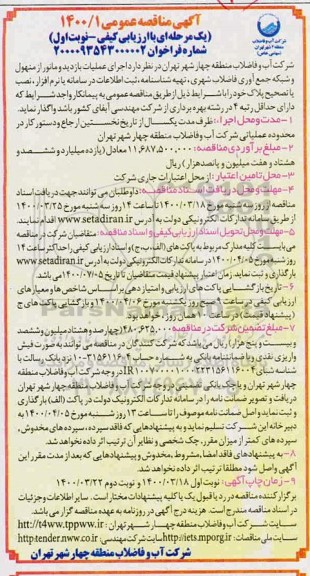 آگهی مناقصه عمومی ۱۴۰۰/۱
(یک مرحله‌ای با ارزیابی کیفی – نوبت اول)
شماره فراخوان ۲۰۰۰۰۹۳۵۴۳۰۰۰۰۰۲
شرکت آب و فاضلاب
منطقه ۴ شهر تهران
(سهامی خاص)
شرکت آب و فاضلاب منطقه چهار شهر تهران در نظر دارد اجرای عملیات بازدید و مانور از منهول
و شبکه جمع آوری فاضلاب شهری، تهیه شناسنامه، ثبت اطلاعات در سامانه یا نرم افزار، نصب
یا تصحیح پلاک خود را با شرایط ذیل از طریق مناقصه عمومی به پیمانکار واجد شرایط که
دارای حداقل رتبه ۴ در رشته بهره برداری از شرکت مهندسی آبفای کشور باشد واگذار نماید.
۱- مدت و محل اجرا: ظرف مدت یکسال از تاریخ نخستین ارجاع و دستور کار در
محدوده عملیاتی شرکت آب و فاضلاب منطقه چهار شهر تهران
۲- مبلغ برآوردی مناقصه: ۱۱,۶۸۷,۵۰۰,۰۰۰ معادل (یازده میلیارد و ششصد و
هشتاد و هفت میلیون و پانصد هزار) ریال
۳- محل تامین اعتبار: از محل اعتبارات جاری شرکت
۴- مهلت و محل دریافت اسناد مناقصه: داوطلبان می توانند جهت دریافت اسناد
مناقصه از روز سه شنبه مورخ ۱۴۰۰/۰۳/۱۸ تا ساعت ۱۴ روز سه شنبه مورخ ۱۴۰۰/۰۳/۲۵
از طریق سامانه تدارکات الکترونیکی دولت به آدرس www.setadiran.ir اقدام نمایند.
۵- مهلت و محل تحویل اسناد ارزیابی کیفی و اسناد مناقصه: متقاضیان شرکت در مناقصه
می بایست کلیه مدارک مربوط به پاکت های (الف، ب، ج) و اسناد ارزیابی کیفی را حداکثر ساعت ۱۴
روز شنبه مورخ ۱۴۰۰/۰۴/۰۵ در سامانه تدارکات الکترونیکی دولت به آدرس www.setadiran.ir
بارگذاری و ثبت نماید. زمان اعتبار پیشنهاد قیمت متقاضیان تا تاریخ ۱۴۰۰/۰۷/۰۵ می باشد
۶- تاریخ بازگشایی پاکت های ارزیابی و امتیاز دهی بر اساس شاخص ها و معیارهای
ارزیابی کیفی در ساعت ۹ صبح روز یکشنبه مورخ ۱۴۰۰/۰۴/۰۶ و بازگشایی پاکت های ج
(پیشنهاد قیمت) در ساعت همان روز، خواهد بود
۷- مبلغ تضمین شرکت در مناقصه: ۴۸۰,۶۲۵,۰۰۰ (چهارصد و هشتاد میلیون و ششصد
و بیست و پنج هزار) ریال می باشد که شرکت کنندگان در مناقصه می توانند به صورت فیش
واریزی نقدی و یا ضمانتنامه بانکی به شماره حساب نزد بانک رسالت با
شماره شبای در وجه شرکت آب و فاضلاب منطقه
چهار شهر تهران و یا چک بانکی به نفع شرکت آب و فاضلاب منطقه چهار شهر تهران
دریافت و تصویر ضمانت نامه را در سامانه تدارکات الکترونیک دولت در پاکت (الف) بارگذاری
و ثبت نماید و اصل ضمانت نامه موصوف را تا ساعت ۱۳ روز شنبه مورخ ۱۴۰۰/۰۴/۰۵ به
دبیرخانه این شرکت تسلیم نماید و به پیشنهادهایی که فاقد سپرده، سپرده های مخدوش،
سپرده های کمتر از میزان مقرر، چک شخصی و نظایر آن ترتیب اثر داده نخواهد شد.
۸- به پیشنهادهای فاقد امضا، مشروط، مخدوش و پیشنهادهایی که بعد از مدت مقرر این
آگهی واصل شود مطلقا ترتیب اثر داده نخواهد شد.
۹- زمان چاپ آگهی: نوبت اول ۱۴۰۰/۰۳/۱۸ و نوبت دوم ۱۴۰۰/۰۳/۲۲
برگزار کننده مناقصه در رد یا قبول یک یا کلیه پیشنهادات مختار است. سایر اطلاعات و جزئیات
در اسناد مناقصه مندرج است. هزینه درج آگهی در روزنامه به عهده مناقصه گزار می باشد.
سایت شرکت آب و فاضلاب منطقه چهار شهر تهران: http://t4ww.tppww.ir
سایت ملی مناقصات: http://iets.mporg.ir سایت شرکت مهندسی: http:tender.nww.co.ir
شرکت آب و فاضلاب منطقه چهار شهر تهران